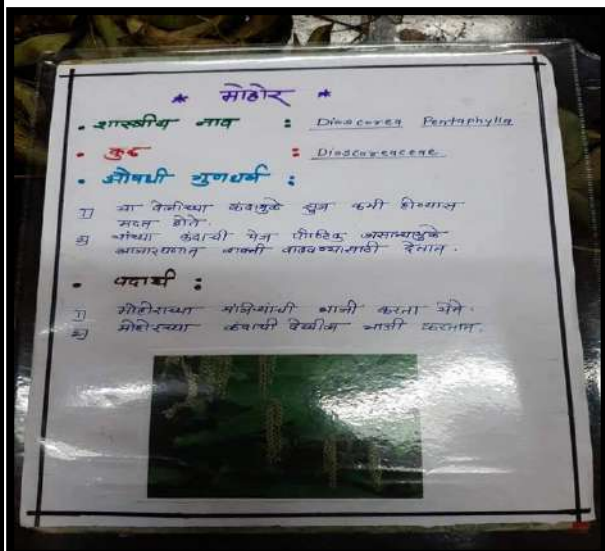 * मोहोर *
• शास्त्रीय नाव : Dioscorea Pentaphylla
• कुळ : Dioscoreaceae
• औषधी गुणधर्म :
1) या वेलीच्या कंदामुळे सुज कमी होण्यास
मदत होते.
2) यांच्या कंदाची पेज पौष्टिक असल्यामुळे
आजारपणात शक्ती वाढवण्यासाठी देतात.
• पदार्थ :
1) मोहोराच्या मंजिऱ्यांची भाजी करता येते.
2) मोहोरच्या कंदाची देखील भाजी करतात.